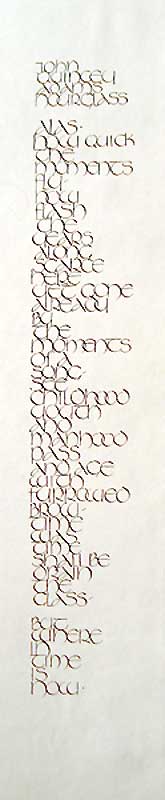 JOHN
QUINCEY
ADAMS
HOURGLASS
ALAS·
HOW QUICK
THE
MOMENTS
FLY·
HOW
FLASH
THE
YEARS
ALONG
SCARCE
HERE
YET GONE
ALREADY
BY
THE
MOMENTS
OF A
SONG·
SEE
CHILDHOOD
YOUTH
AND
MANHOOD
PASS
AND AGE
WITH
FURROWED
BROW·
TIME
WAS·
TIME
SHALL BE
DRAIN
THE
GLASS·
BUT
WHERE
IN
TIME
IS
NOW·